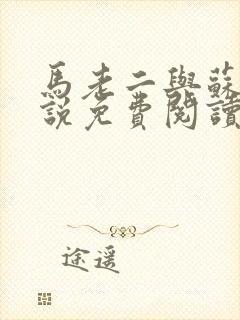 馬老二與蘇
說免費閱讀
途遥